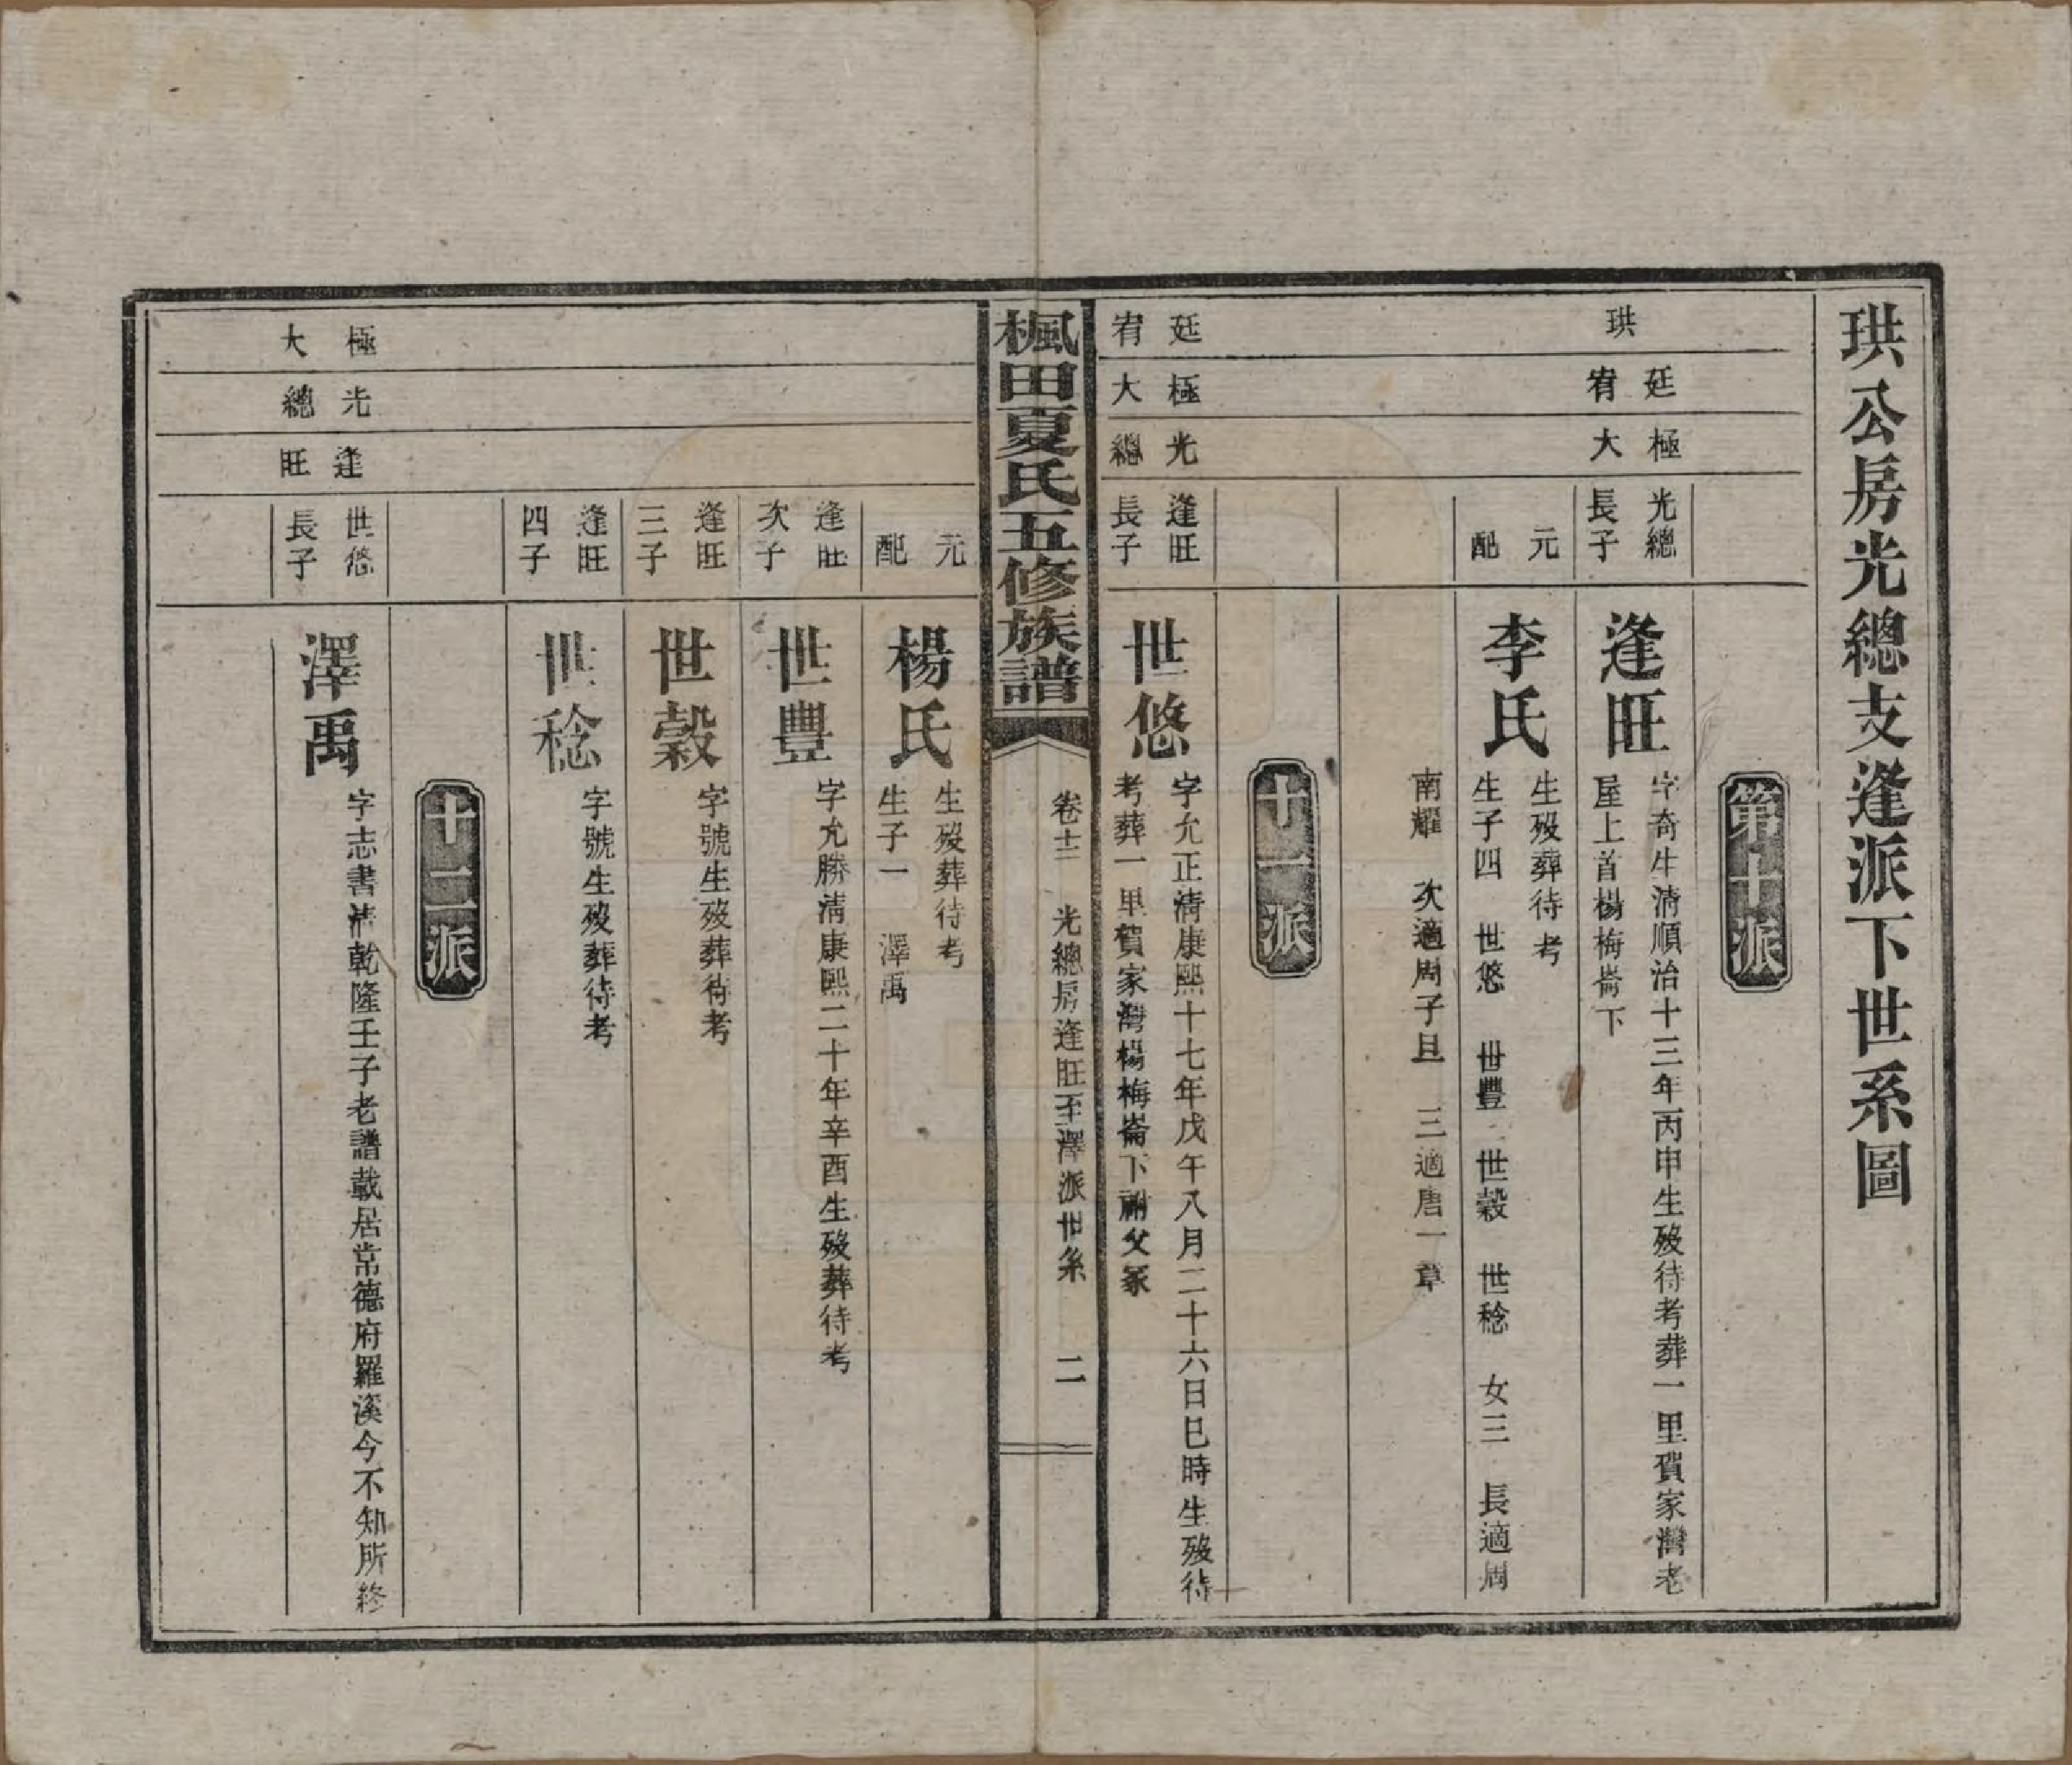 珙公房光總支逢派下世系圖
第十派
珙
廷宥
極大
光總長子
逢旺
字奇生清順治十三年丙申生歿待考葬一里賀家灣老
屋上首楊梅崙下
元配
李氏
生歿葬待考
生子四 世悠 世豐 世穀 世稔 女三 長適周
南耀 次適周子且 三適唐一章
十一派
廷宥
極大
光總
逢旺長子
世悠
字允正清康熙十七年戊午八月二十六日巳時生歿待
考葬一里賀家灣楊梅崙下祔父冢
楓田夏氏五修族譜
卷十二 光總房逢旺至澤派世系 二
元配
楊氏
生歿葬待考
生子一 澤禹
逢旺次子
世豐
字允勝清康熙二十年辛酉生歿葬待考
逢旺三子
世穀
字號生歿葬待考
逢旺四子
世稔
字號生歿葬待考
十二派
極大
光總
逢旺
世悠長子
澤禹
字志書清乾隆壬子老譜載居常德府羅溪今不知所終